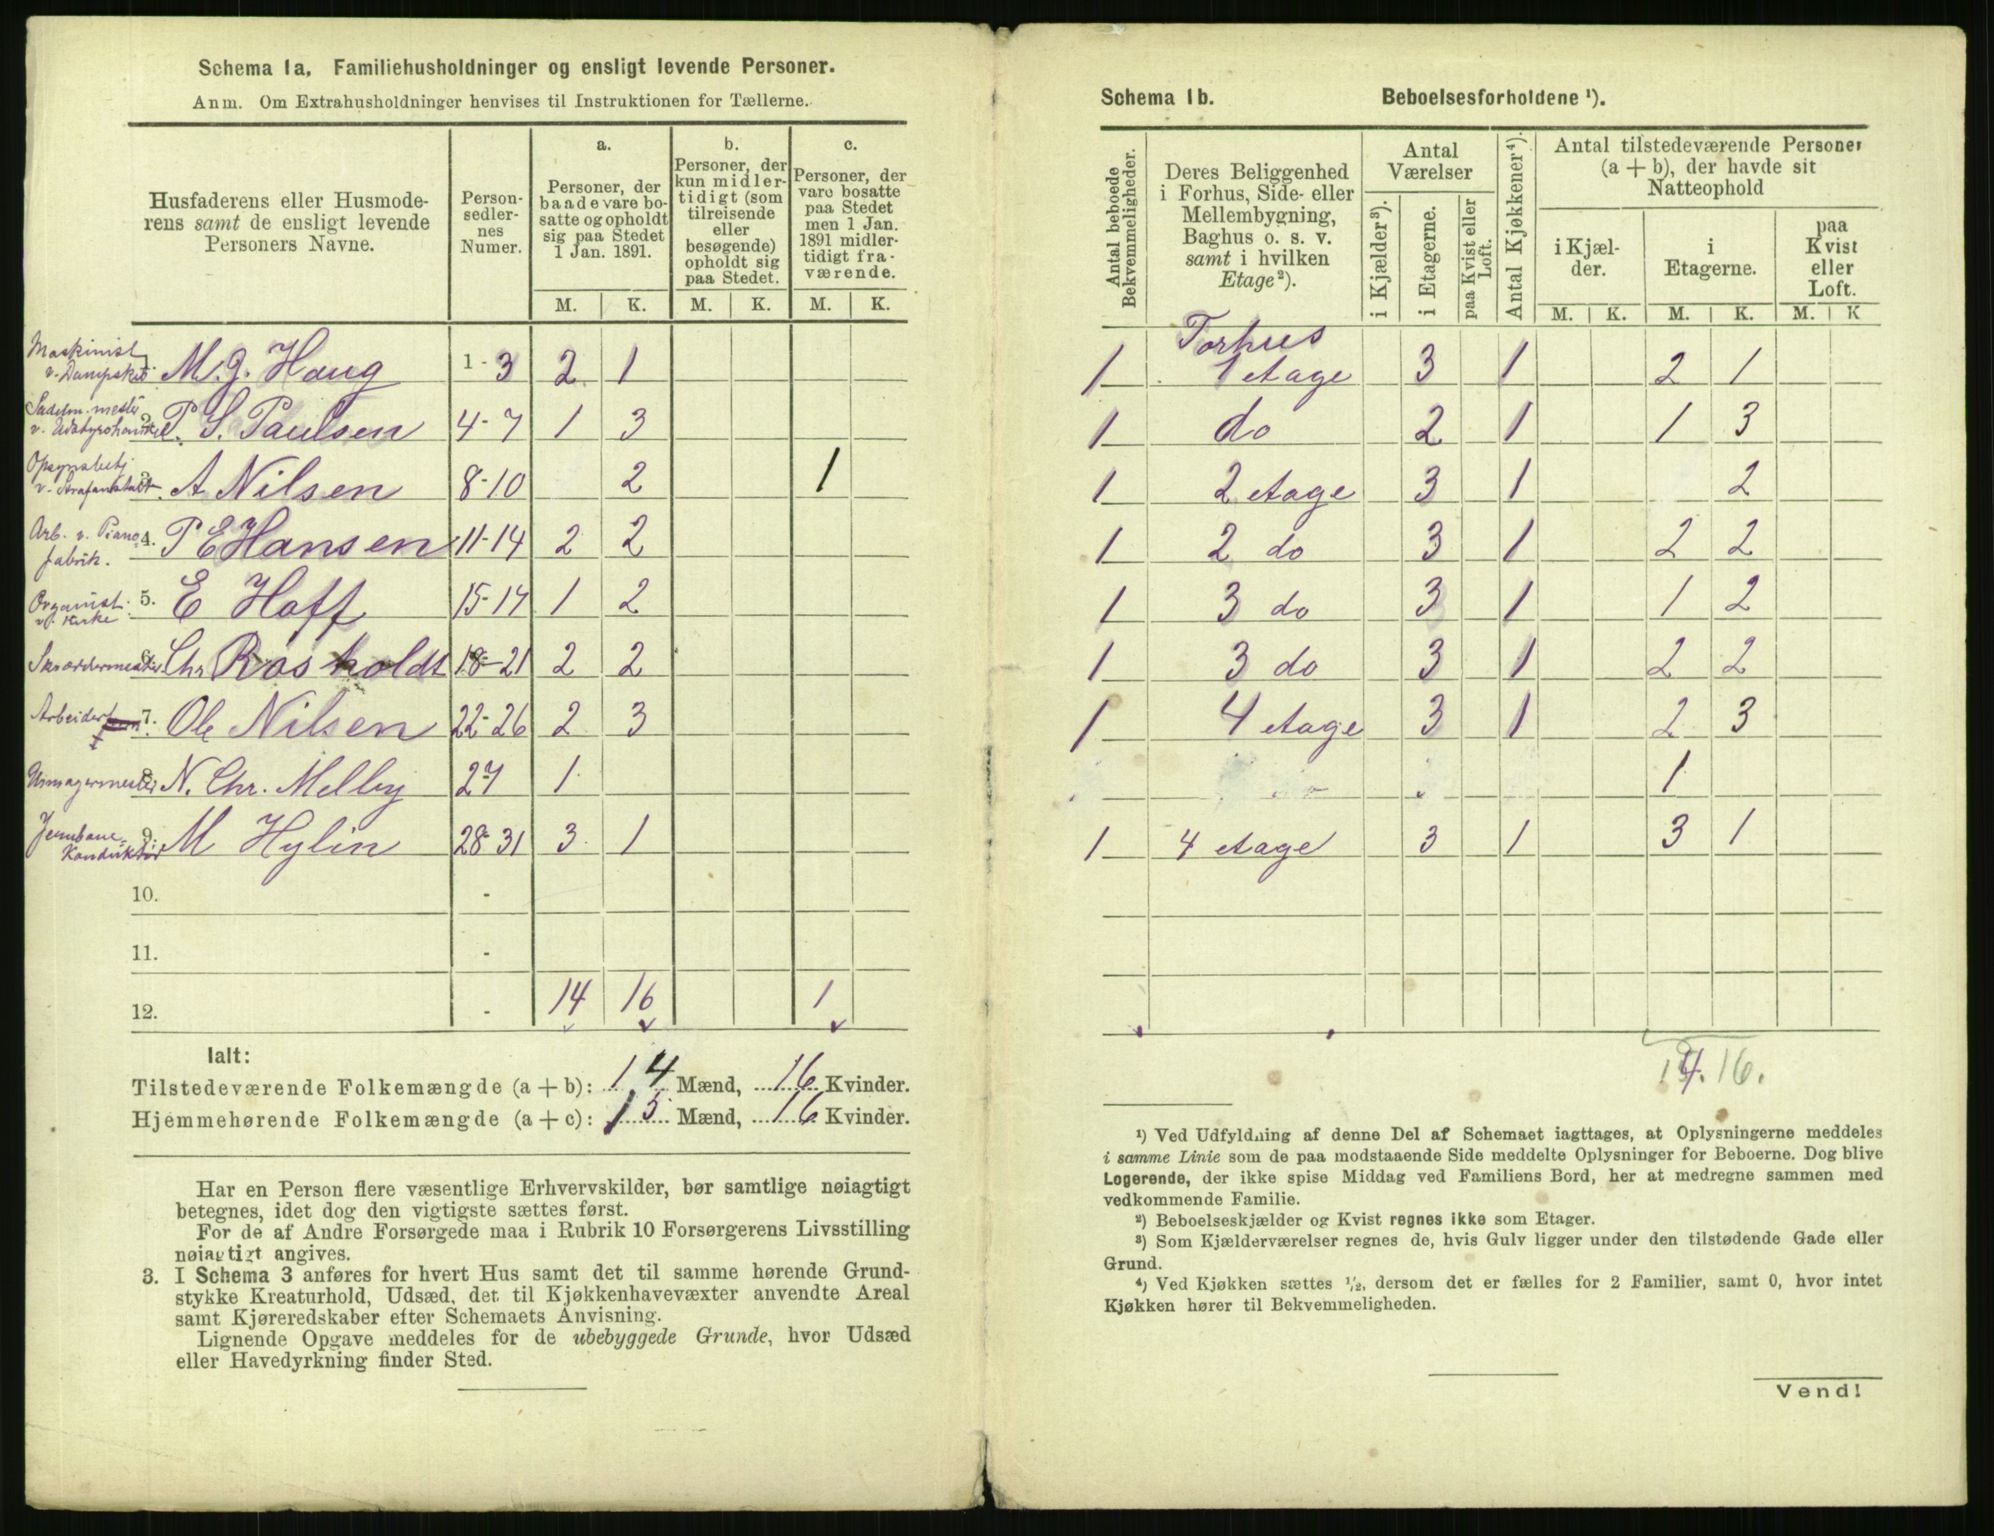 Schema 1a. Familiehusholdninger og ensligt levende Personer.
Anm. Om Extrahusholdninger henvises til Instruktionen for Tællerne.
Husfaderens eller Husmoderens samt de ensligt levende Personers Navne.
Personsedlernes Numer.
a.
Personer, der baade vare bosatte og opholdt sig paa Stedet 1 Jan. 1891.
b.
Personer, der kun midlertidigt (som tilreisende eller besøgende) opholdt sig paa Stedet.
c.
Personer, der vare bosatte paa Stedet men 1 Jan. 1891 midlertidigt fraværende.
M. K. M. K. M. K.
Maskinist v. Dampskib M. J. Haug 1-3 2 1
Sadelm. mester P. S. Paulsen 4-7 1 3
Opsynsbetj v. Strafanstalt 3. A Nilsen 8-10 2 1
Arb. v. Piano fabrik. 4. P E Hansen 11-14 2 2
Organist v. Kirke 5. E Hoff 15-17 1 2
Skræddermester 6. Chr Rosholdt 18-21 2 2
Arbeider 7. Ole Nilsen 22-26 2 3
Urmagermester 8. N. Chr. Melby 27 1
Jernbane Konduktør 9. M Hylin 28-31 3 1
10. -
11. -
12. - 14 16 1
Ialt:
Tilstedeværende Folkemængde (a + b): 14 Mænd, 16 Kvinder.
Hjemmehørende Folkemængde (a + c): 15 Mænd, 16 Kvinder.
Har en Person flere væsentlige Erhvervskilder, bør samtlige nøiagtigt
betegnes, idet dog den vigtigste sættes først.
For de af Andre Forsørgede maa i Rubrik 10 Forsørgerens Livsstilling
nøiagtigt angives.
3. I Schema 3 anføres for hvert Hus samt det til samme hørende Grund-
stykke Kreaturhold, Udsæd, det til Kjøkkenhavevæxter anvendte Areal
samt Kjøreredskaber efter Schemaets Anvisning.
Lignende Opgave meddeles for de ubebyggede Grunde, hvor Udsæd
eller Havedyrkning finder Sted.
Schema 1b. Beboelsesforholdene ¹).
Antal beboede Bekvemmeligheder.
Deres Beliggenhed i Forhus, Side- eller Mellembygning, Baghus o. s. v. samt i hvilken Etage²).
Antal Værelser
i Kjælder³).
i Etagerne.
paa Kvist eller Loft.
Antal Kjøkkener⁴).
Antal tilstedeværende Personer (a + b), der havde sit Natteophold
i Kjælder.
i Etagerne.
paa Kvist eller Loft.
M. K. M. K. M. K
Forhus
1 1 Etage 3 1 2 1
1 do 2 1 1 3
1 2 Etage 3 1 2
1 2 do 3 1 2 2
1 3 do 3 1 1 2
1 3 do 3 1 2 2
1 4 Etage 3 1 2 3
1
1 4 Etage 3 1 3 1
14. 16.
¹) Ved Udfyldning af denne Del af Schemaet iagttages, at Oplysningerne meddeles
i samme Linie som de paa modstaaende Side meddelte Oplysninger for Beboerne. Dog blive
Logerende, der ikke spise Middag ved Familiens Bord, her at medregne sammen med
vedkommende Familie.
²) Beboelseskjælder og Kvist regnes ikke som Etager.
³) Som Kjælderværelser regnes de, hvis Gulv ligger under den tilstødende Gade eller
Grund.
⁴) Ved Kjøkken sættes ½, dersom det er fælles for 2 Familier, samt 0, hvor intet
Kjøkken hører til Bekvemmeligheden.
Vend!